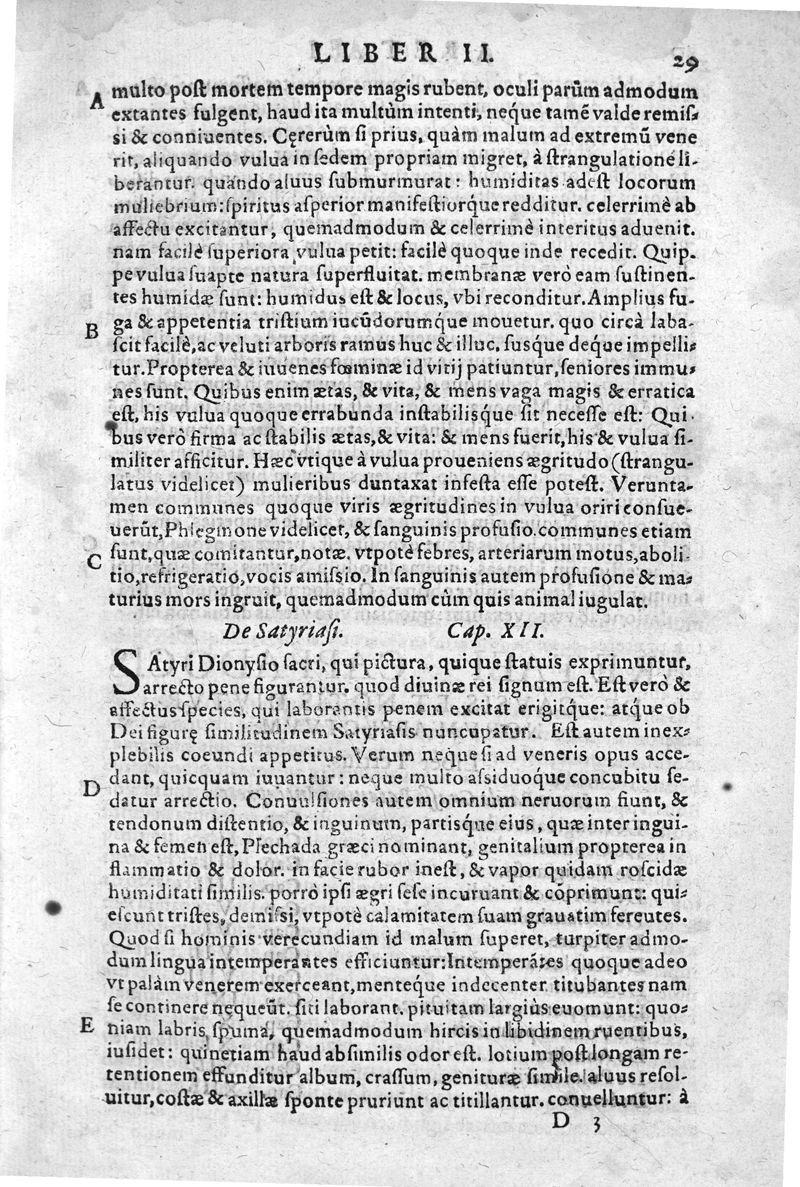 LIBER II. 29
A multo post mortem tempore magis rubent, oculi parũm admodum
extantes fulgent, haud ita multùm intenti, neque tamẽ valde remiſ-
ſi & conniuentes. Cęrerùm ſi prius, quàm malum ad extremũ vene
rit, aliquando vulua in ſedem propriam migret, à ſtrangulatione li-
berantur. quando aluus ſubmurmurat: humiditas adeſt locorum
muliebrium: ſpiritus aſperior manifeſtiorque redditur. celerrimè ab
affectu excitantur, quemadmodum & celerrimè interitus aduenit.
nam facilè ſuperiora vulua petit: facilè quoque inde recedit. Quip-
pe vulua ſuapte natura ſuperfluitat. membranæ verò eam ſuſtinen-
tes humidæ ſunt: humidus eſt & locus, vbi reconditur. Amplius fu-
B ga & appetentia triſtium iucũdorumque mouetur. quo circà laba-
ſcit facilè, ac veluti arboris ramus huc & illuc, ſuſque deque impelli-
tur. Propterea & iuuenes fœminæ id vitij patiuntur, ſeniores immu-
nes ſunt. Quibus enim ætas, & vita, & mens vaga magis & erratica
eſt, his vulua quoque errabunda inſtabilisque ſit neceſſe eſt: Qui-
bus verò firma ac ſtabilis ætas, & vita: & mens fuerit, his & vulua ſi-
militer afficitur. Hæc vtique à vulua proueniens ægritudo (ſtrangu-
latus videlicet) mulieribus duntaxat infeſta eſſe poteſt. Verunta-
men communes quoque viris ægritudines in vulua oriri conſue-
uerũt, Phlegmone videlicet, & ſanguinis profuſio. communes etiam
C ſunt, quæ comitantur, notæ. vtpotè febres, arteriarum motus, aboli-
tio, refrigeratio, vocis amiſsio. In ſanguinis autem profuſione & ma-
turius mors ingruit, quemadmodum cùm quis animal iugulat.
De Satyriaſi. Cap. XII.
SAtyri Dionyſio ſacri, qui pictura, quique ſtatuis exprimuntur,
arrecto pene figurantur. quod diuinæ rei ſignum eſt. Eſt verò &
affectus ſpecies, qui laborantis penem excitat erigitque: atque ob
Dei figurę ſimilitudinem Satyriaſis nuncupatur. Eſt autem inex-
plebilis coeundi appetitus. Verum neque ſi ad veneris opus acce-
D dant, quicquam iuuantur: neque multo aſsiduoque concubitu ſe-
datur arrectio. Conuulſiones autem omnium neruorum fiunt, &
tendonum diſtentio, & inguinum, partisque eius, quæ inter ingui-
na & femen eſt, Plechada græci nominant, genitalium propterea in
flammatio & dolor. in facie rubor ineſt, & vapor quidam roſcidæ
humiditati ſimilis. porrò ipſi ægri ſeſe incuruant & cõprimunt: qui-
eſcunt triſtes, demiſsi, vtpotè calamitatem ſuam grauatim ferentes.
Quod ſi hominis verecundiam id malum ſuperet, turpiter admo-
dum lingua intemperantes efficiuntur: Intemperãtes quoque adeo
vt palàm venerem exerceant, menteque indecenter titubantes nam
ſe continere nequeũt. ſiti laborant. pituitam largiùs euomunt: quo-
E niam labris, ſpuma, quemadmodum hircis in libidinem ruentibus,
inſidet: quinetiam haud abſimilis odor eſt. lotium poſt longam re-
tentionem effunditur album, craſſum, genituræ ſimile. aluus reſol-
uitur, coſtæ & axillæ ſponte pruriunt ac titillantur. conuelluntur: à
D 3